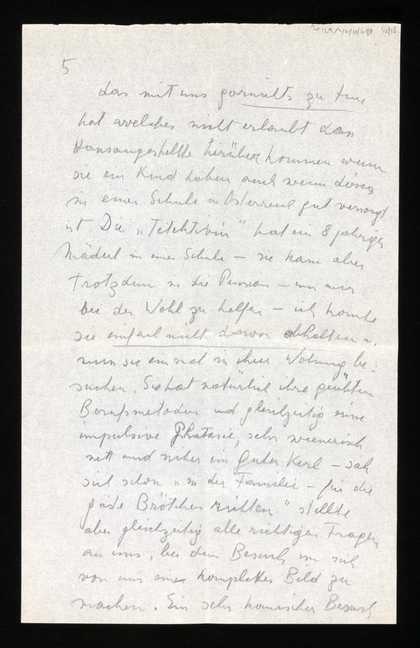 5
das mit uns garnichts zu tun
hat welches nicht erlaubt dass
Hausangestellte herüber kommen wenn
sie ein Kind haben auch wenn dieses
in einer Schule in Österreich gut versorgt
ist Die „Detektivin" hat ein 8 jähriges
Mäderl in einer Schule – sie kam aber
trotzdem in die Pension – um mir
bei der Wahl zu helfen – ich konnte
sie einfach nicht davon abhalten u.
nun sie einmal in ihrer Wohnung be-
suchen. Sie hat natürlich ihre geübten
Berufsmethoden und gleichzeitig eine
impulsive Phantasie, sehr wienerisch
nett und sicher ein guter Kerl – sah
sich schon „in der Familie – für die
Brötchen stellte
aber gleichzeitig alle richtigen Fragen
an uns, bei dem Besuch um sich
von uns ein komplettes Bild zu
machen. Ein sehr komischer Besuch